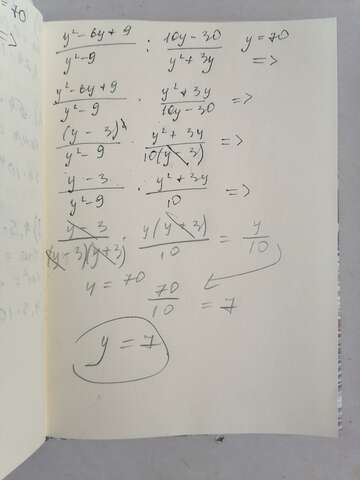 y² - 6y + 9 / y² - 9 : 10y - 30 / y² + 3y y = 70 =>
y² - 6y + 9 / y² - 9 · y² + 3y / 10y - 30 =>
(y - 3)² / y² - 9 · y² + 3y / 10(y - 3) =>
y - 3 / y² - 9 · y² + 3y / 10 =>
y - 3 / (y - 3)(y + 3) · y(y + 3) / 10 = y / 10
y = 70 70 / 10 = 7
y = 7